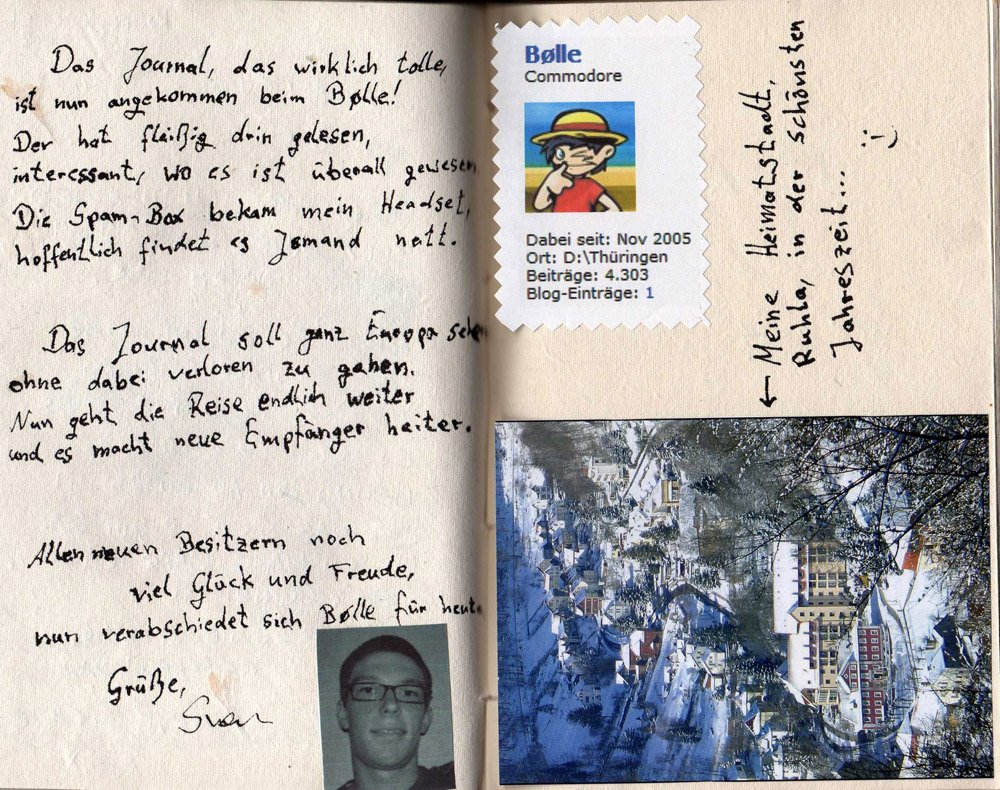 Das Journal, das wirklich tolle,
ist nun angekommen beim Bølle!
Der hat fleißig drin gelesen,
interessant, wo es ist überall gewesen.
Die Spam-Box bekam mein Headset,
hoffentlich findet es Jemand nett.
Das Journal soll ganz Europa sehen
ohne dabei verloren zu gehen.
Nun geht die Reise endlich weiter
und es macht neue Empfänger heiter.
Allen neuen Besitzern noch
viel Glück und Freude,
nun verabschiedet sich Bølle für heute.
Grüße,
Sven
Bølle
Commodore
Dabei seit: Nov 2005
Ort: D:\Thüringen
Beiträge: 4.303
Blog-Einträge: 1
← Meine Heimatstadt,
Ruhla, in der schönsten
Jahreszeit...
:-)